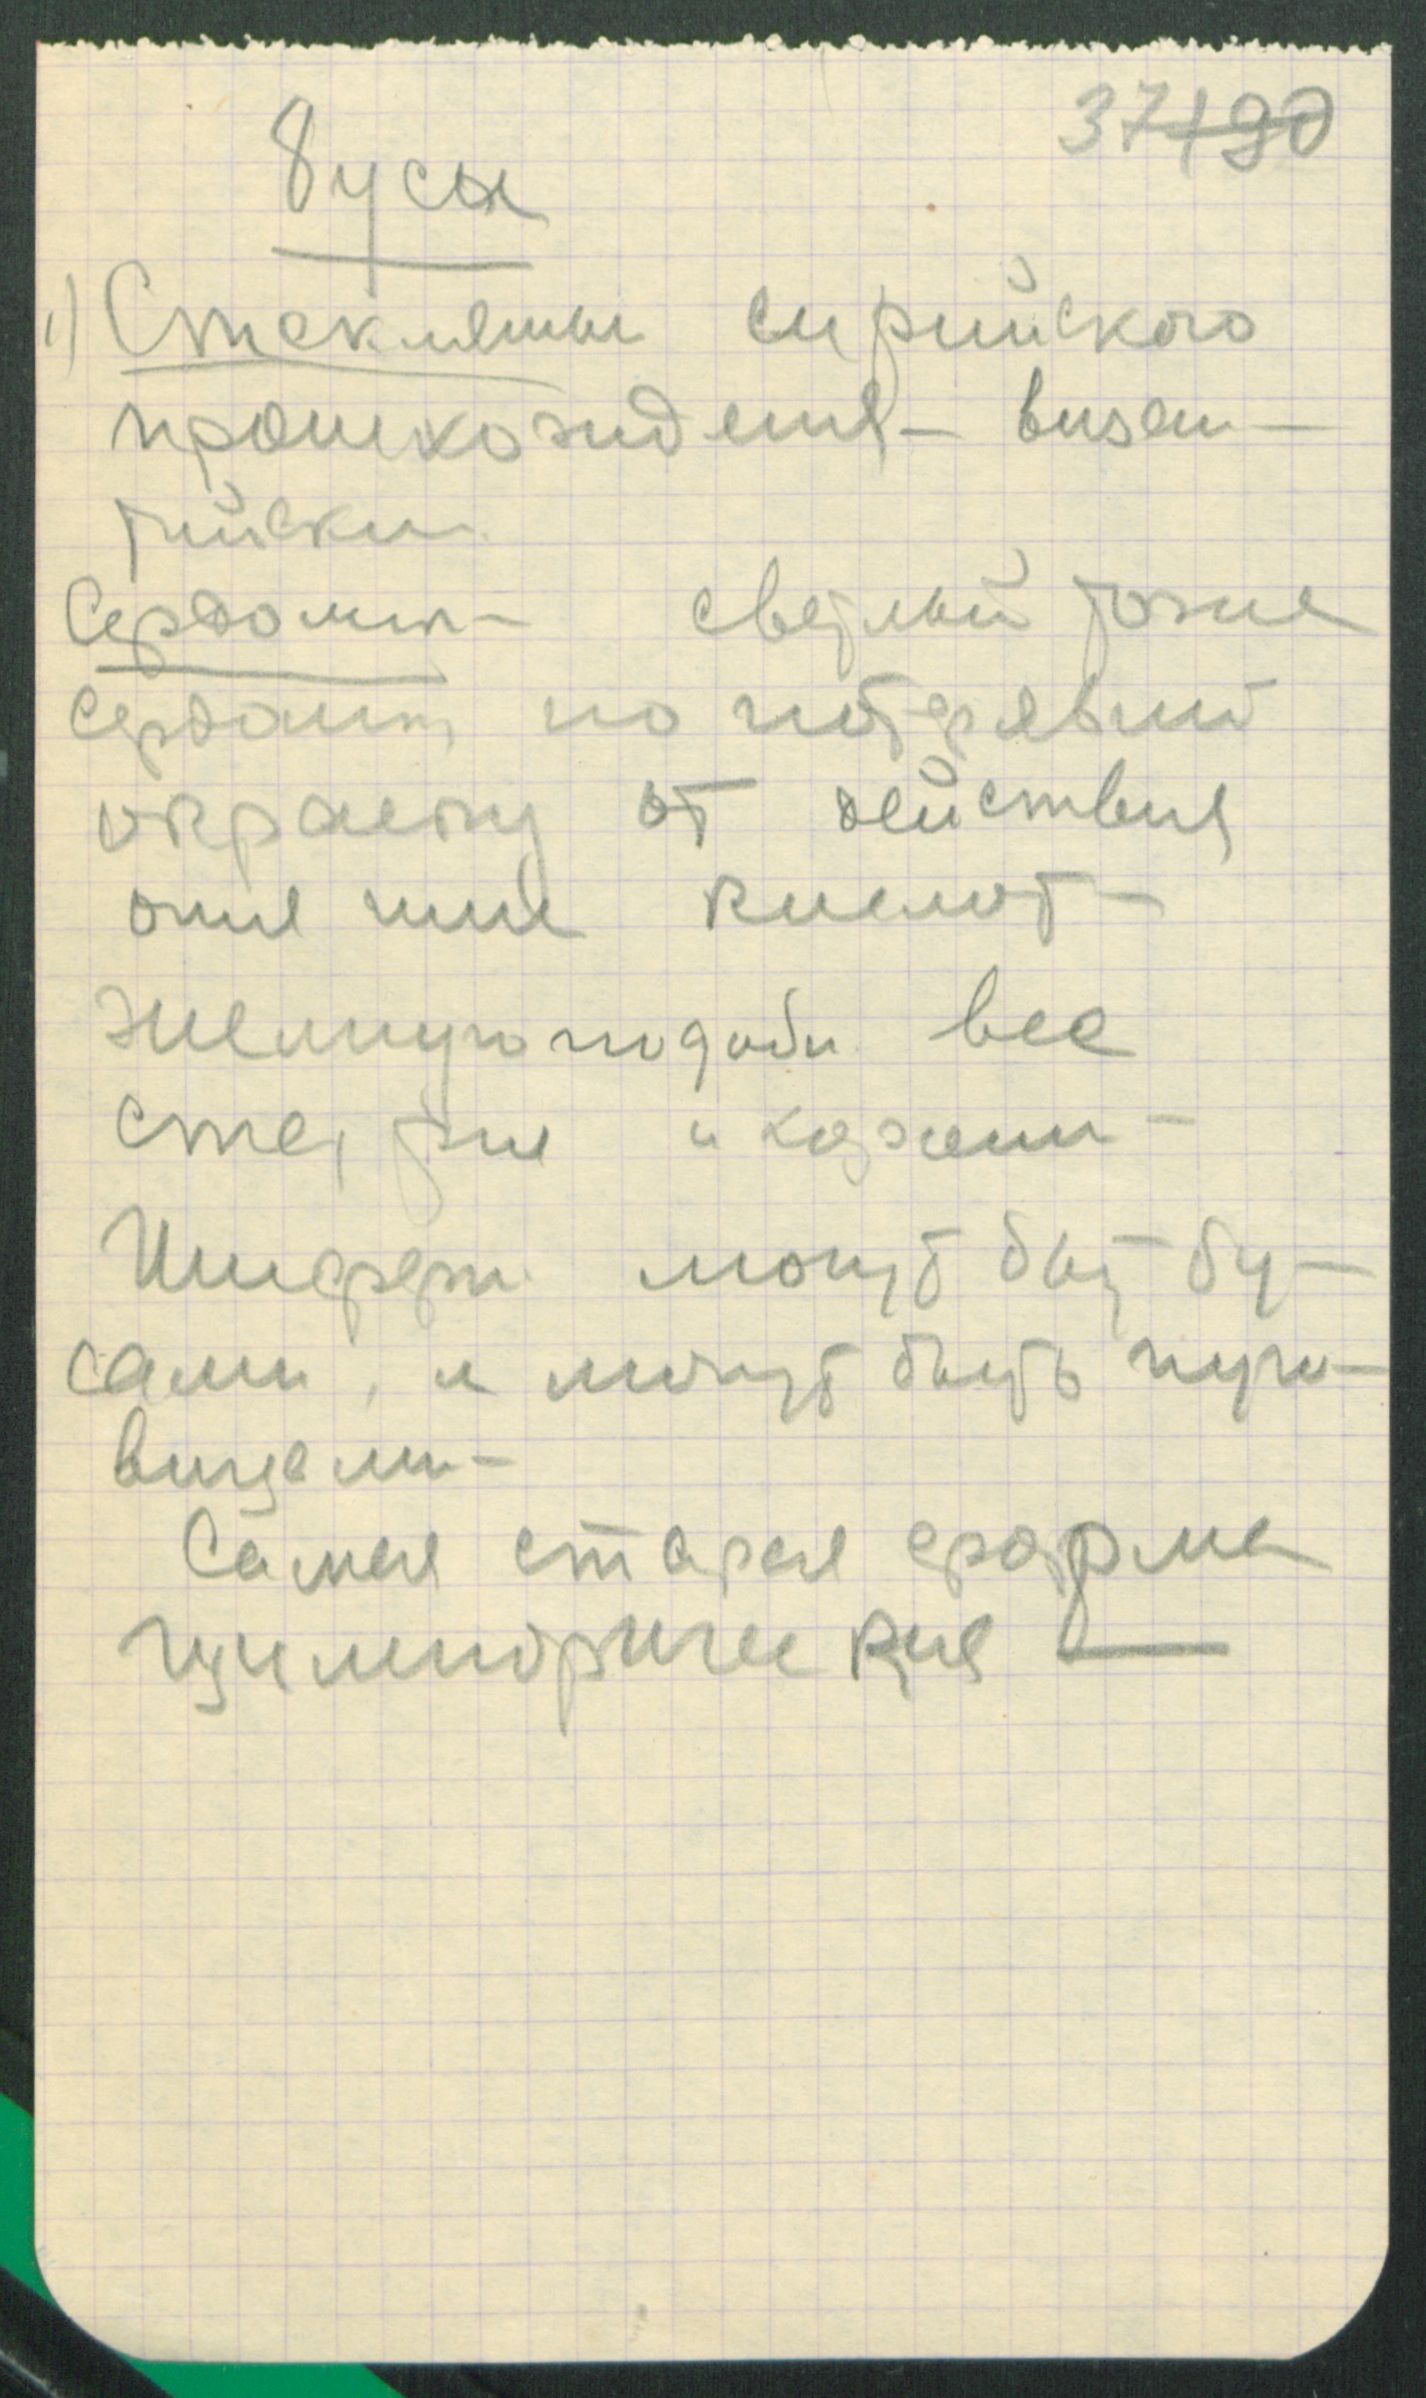 37 190
Бусы
1) Стеклянные сирийского
происхождения — визан-
тийски
Сердолик — светлый тоже
сердолик но потерявший
окраску от действия
огня или кислот —
Жемчугоподобн. все
стертые и
Шиферн. могут быть бу-
сами, и могут быть пуго-
вицами —
Самая старая форма
цилиндрическая —